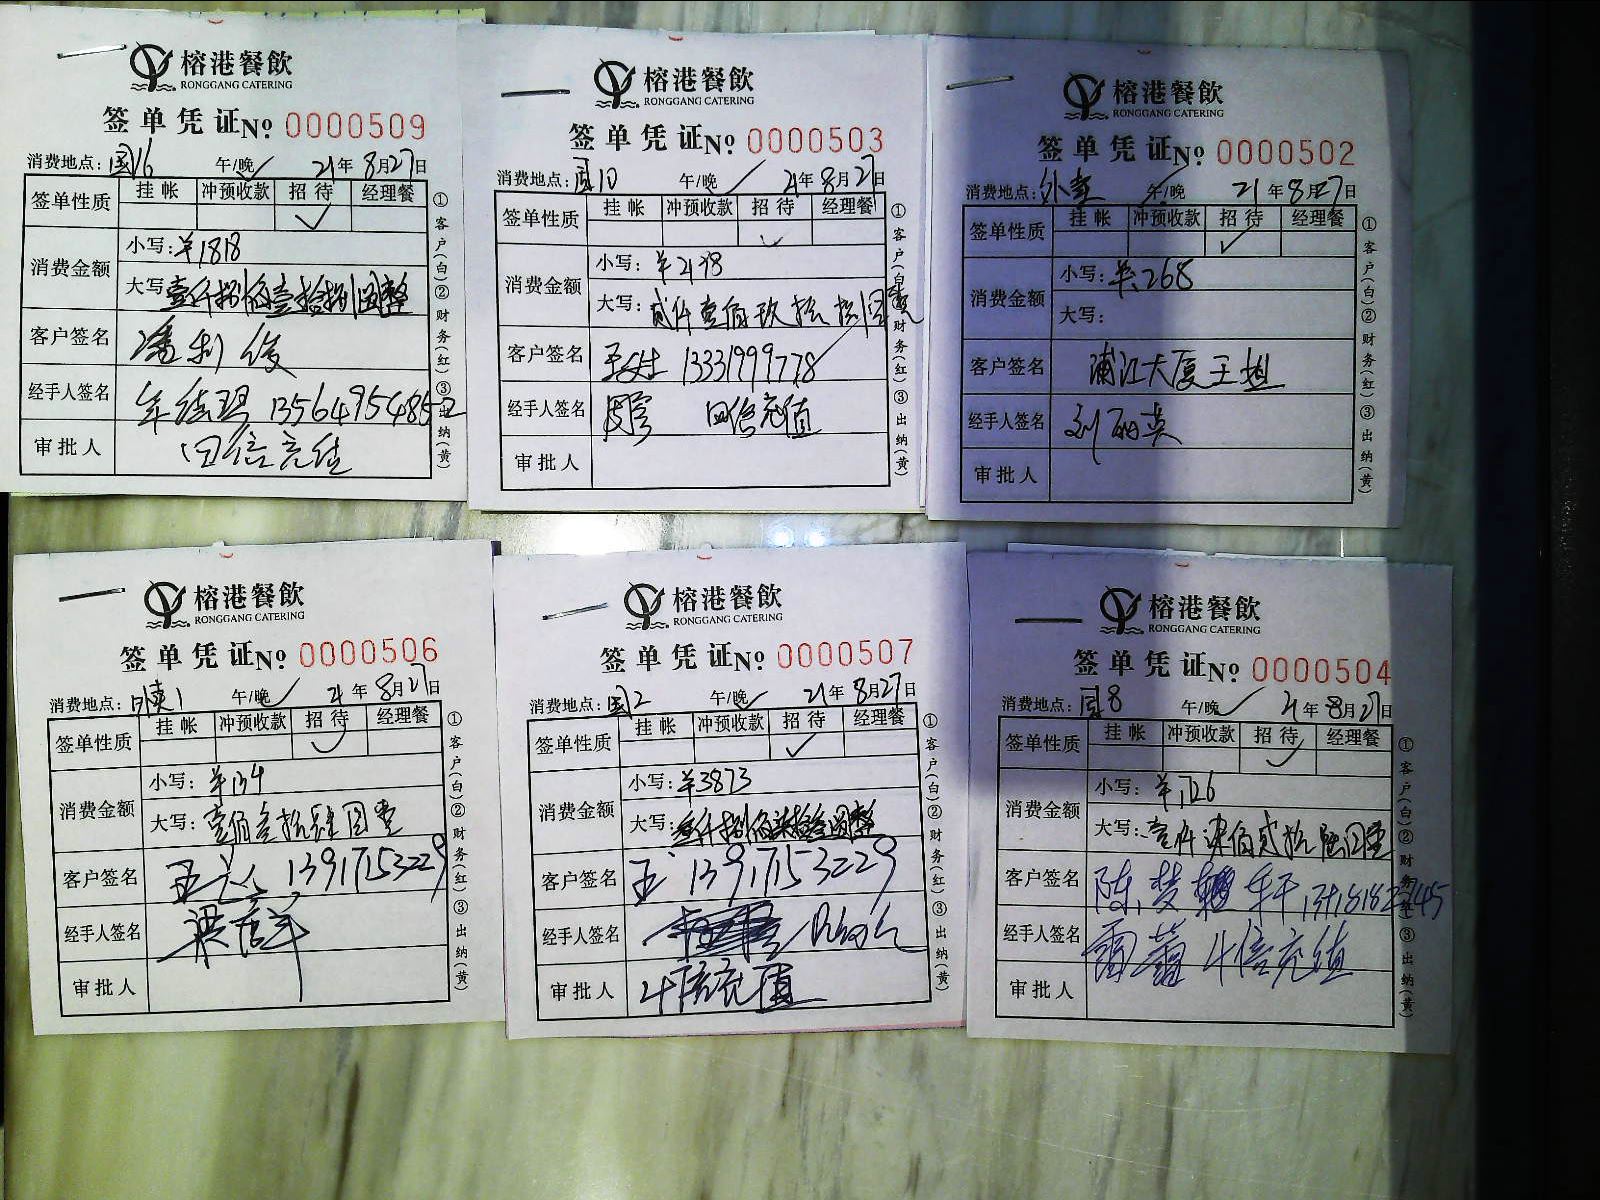 榕港餐飲
RONGGANG CATERING
签单凭证 № 0000509
消费地点：国16 午/晚 ✓ 21年8月27日
签单性质 挂帐 冲预收款 招待 经理餐
✓
消费金额 小写：¥1818
大写：壹仟捌佰壹拾捌圆整
客户签名 潘利俊
经手人签名 1356495485
审批人 四倍充值
①客户(白)②财务(红)③出纳(黄)
榕港餐飲
RONGGANG CATERING
签单凭证 № 0000503
消费地点：国10 午/晚 ✓ 21年8月27日
签单性质 挂帐 冲预收款 招待 经理餐
✓
消费金额 小写：
大写：贰仟壹佰玖拾捌圆整
客户签名 王女士 13331999778
经手人签名 四倍充值
审批人
①客户(白)②财务(红)③出纳(黄)
榕港餐飲
RONGGANG CATERING
签单凭证 № 0000502
消费地点：外卖 午/晚 21年8月27日
签单性质 挂帐 冲预收款 招待 经理餐
✓
消费金额 小写：¥268
大写：
客户签名 浦江大厦王姐
经手人签名 刘丽英
审批人
①客户(白)②财务(红)③出纳(黄)
榕港餐飲
RONGGANG CATERING
签单凭证 № 0000506
消费地点：外卖1 午/晚 ✓ 21年8月27日
签单性质 挂帐 冲预收款 招待 经理餐
✓
消费金额 小写：¥134
大写：壹佰叁拾肆圆整
客户签名 王 13917153229
经手人签名
审批人
①客户(白)②财务(红)③出纳(黄)
榕港餐飲
RONGGANG CATERING
签单凭证 № 0000507
消费地点：国2 午/晚 ✓ 21年8月27日
签单性质 挂帐 冲预收款 招待 经理餐
✓
消费金额 小写：¥3873
大写：叁仟捌佰柒拾叁圆整
客户签名 王 13917153229
经手人签名
审批人 4倍充值
①客户(白)②财务(红)③出纳(黄)
榕港餐飲
RONGGANG CATERING
签单凭证 № 0000504
消费地点：国8 午/晚 ✓ 21年8月27日
签单性质 挂帐 冲预收款 招待 经理餐
✓
消费金额 小写：¥1726
大写：壹仟柒佰贰拾陆圆整
客户签名 陈梦
经手人签名 雷蕾 4倍充值
审批人
①客户(白)②财务(红)③出纳(黄)